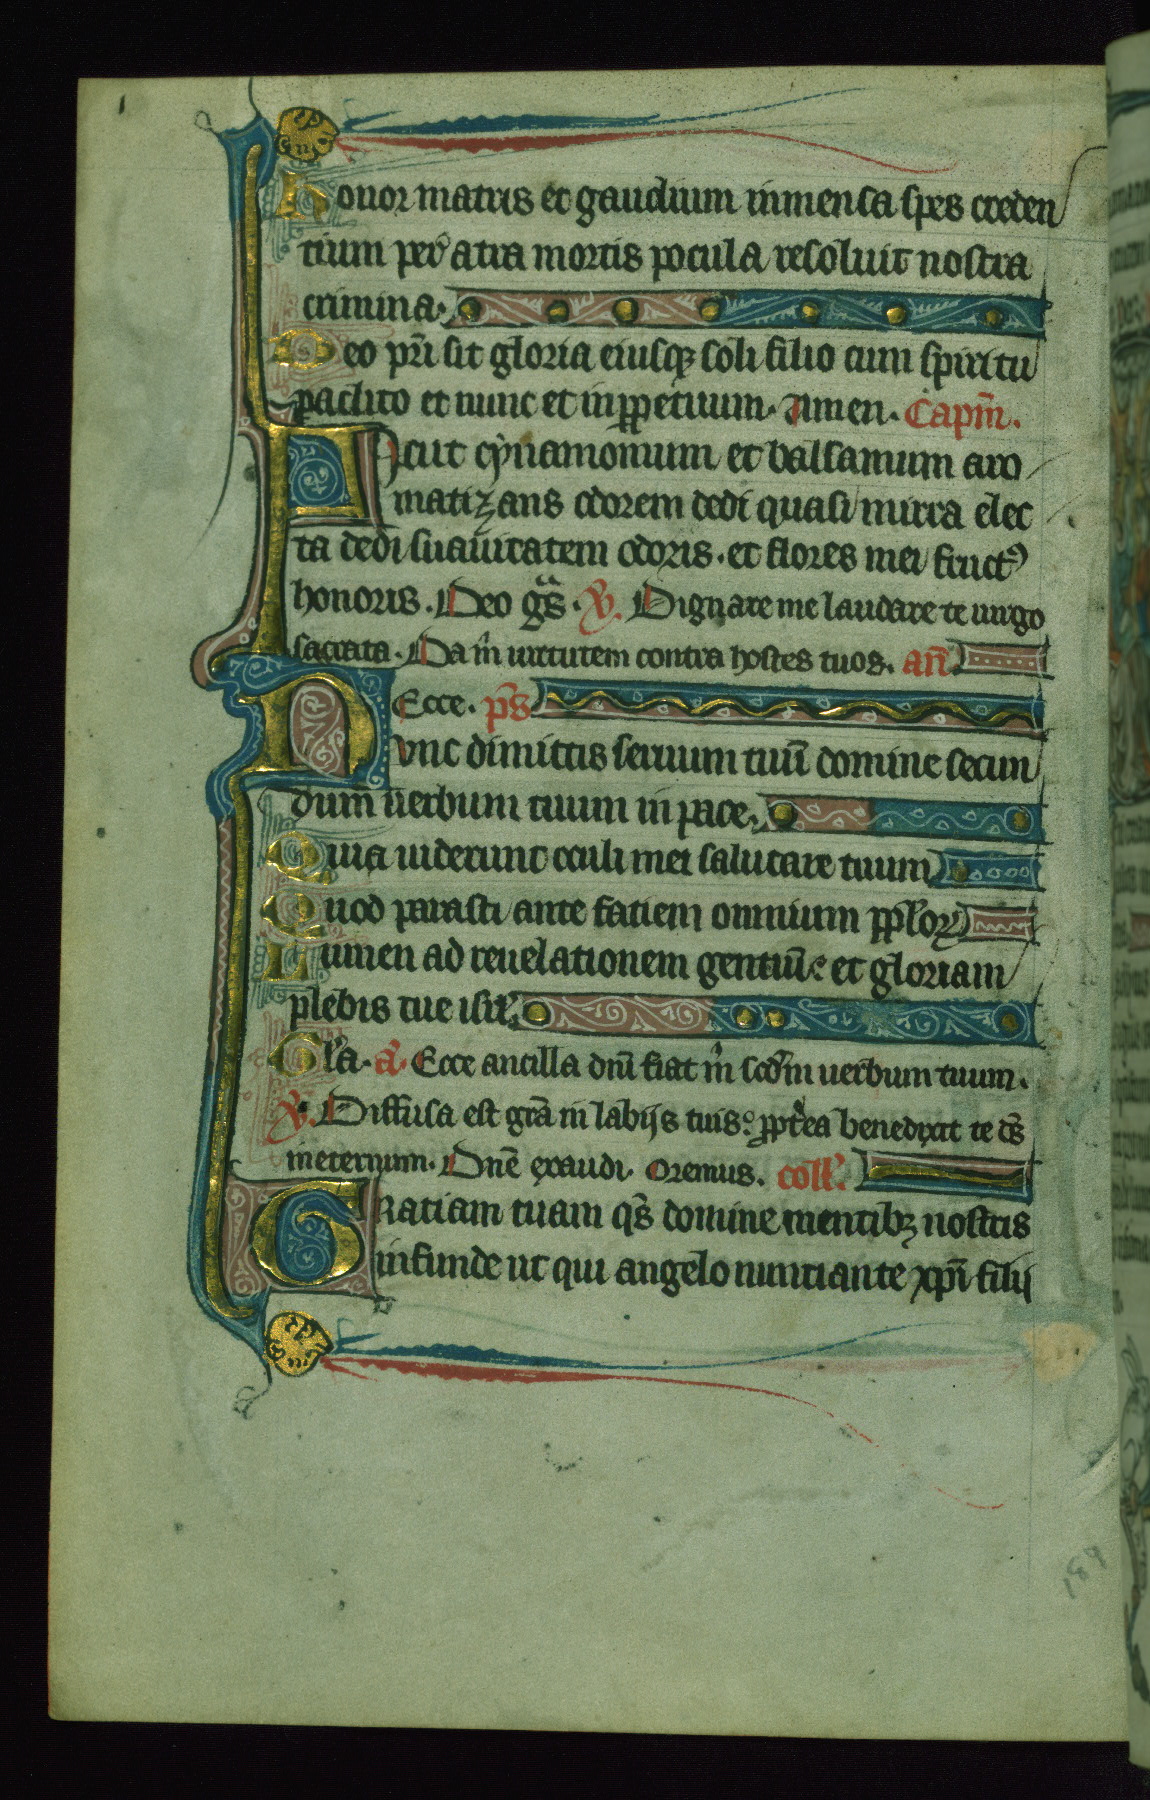 Honor matris et gaudium inmensa spes creden
tium per atra mortis pocula resoluit nostra
crimina.
Deo pr̄i sit gloria eiusqꝫ soli filio cum spiritu
paclito et nunc et inꝑpetuum. Amen. Capm̄.
Sicut cynamomum et balsamum aro
matizans odorem dedi quasi mirra elec
ta dedi suauitatem odoris. et flores mei fructꝰ
honoris. Deo gr̄as. ℣. Dignare me laudare te uirgo
sacrata. Da m̄ uirtutem contra hostes tuos. an̄
Ecce. ps̄
Nvnc dimittis seruum tuū domine secun
dum uerbum tuum in pace.
Quia uiderunt oculi mei salutare tuum
Quod parasti ante faciem omnium pp̄loꝝ
Lumen ad reuelationem gentiū et gloriam
plebis tue isrl̄.
Glā. a. Ecce ancilla dn̄i fiat m̄ scd̄m uerbum tuum.
℣. Diffusa est grā in labijs tuis. ꝓpt̄ea benedixit te ds̄
in eternum. Dn̄e exaudi. Oremus. coll̄.
GRatiam tuam qs̄ domine mentibꝫ nostris
infunde ut qui angelo nuntiante xp̄i filij